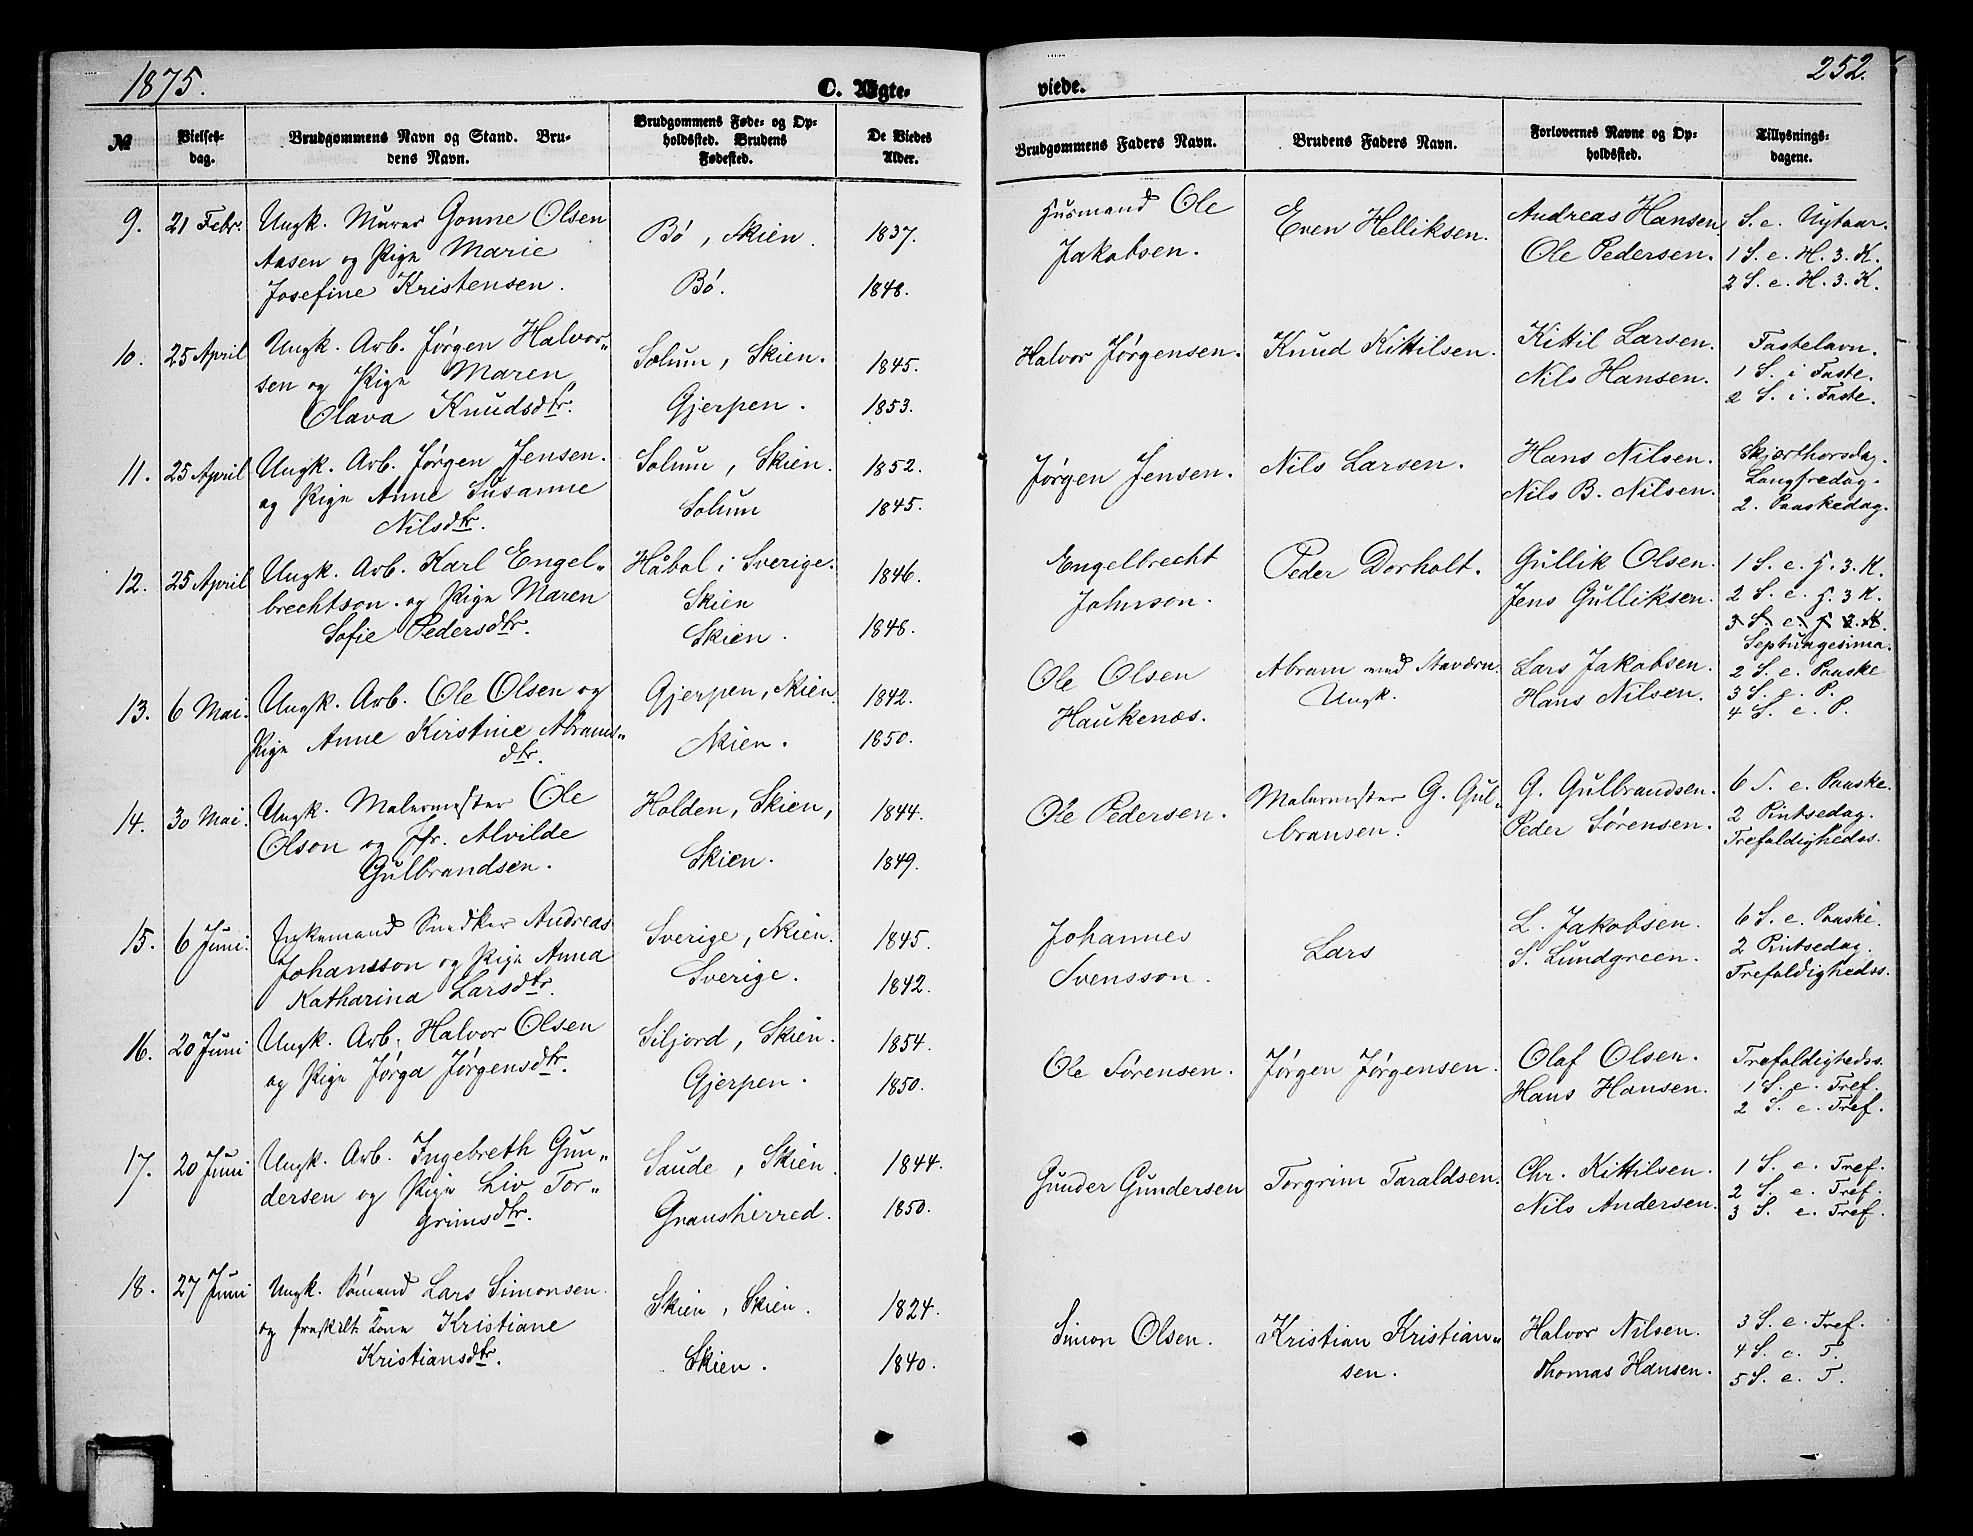 1875.
C. Ægte-
viede.
252.
№
Vielses-
dag.
Brudgommens Navn og Stand. Bru-
dens Navn.
Brudgommens Føde- og Op-
holdssted. Brudens
Fødested.
De Viedes
Alder.
Brudgommens Faders Navn.
Brudens Faders Navn.
Forlovernes Navne og Op-
holdssted.
Tillysnings-
dagene.
9. 21 Febr.
Ungk. Murer Gonne Olsen
Aasen og Pige Marie
Josefine Kristensen.
Bø, Skien.
Bø.
1837.
1848.
Husmand Ole
Jakobsen.
Even Helliksen.
Andreas Hansen
Ole Pedersen.
S. e. Nytaar.
1 S. e. H. 3. K.
2 S. e. H. 3. K.
10. 25 April
Ungk. Arb. Jørgen Halvor„
sen og Pige Maren
Olava Knudsdtr.
Solum, Skien.
Gjerpen.
1845.
1853.
Halvor Jørgensen.
Knud Kittilsen.
Kittil Larsen.
Nils Hansen.
Fastelavn.
1 S. i Faste.
2 S. i. Faste.
11. 25 April
Ungk. Arb. Jørgen Jensen.
og Pige Anne Susanne
Nilsdtr.
Solum, Skien.
Solum
1852.
1845.
Jørgen Jensen.
Nils Larsen.
Hans Nilsen.
Nils B. Nilsen.
Skjærthorsdag.
Langfredag.
2. Paaskedag.
12. 25 April
Ungk. Arb. Karl Engel„
brechtson. og Pige Maren
Sofie Pedersdtr.
Håbol i Sverige.
Skien
Skien.
1846.
1848.
Engelbrecht
Johnson.
Peder Dorholt.
Gullik Olsen.
Jens Gulliksen.
1 S. e. H. 3. K.
2 S. e. H. 3 K.
3 S. e. H. 3. K.
Septuagesima.
13. 6 Mai.
Ungk. Arb. Ole Olsen og
Pige Anne Kirstine Abrams„
dtr.
Gjerpen, Skien
Skien.
1842.
1850.
Ole Olsen
Haukenæs.
Abram med Staværn
Ungk.
Lars Jakobsen.
Hans Nilsen.
2 S. e. Paaske
3 S. e. P.
4 S. e. P.
14. 30 Mai.
Ungk. Malermester Ole
Olson og Jfr. Alvilde
Gulbrandsen.
Holden, Skien,
Skien.
1844.
1849.
Ole Pedersen.
Malermester G. Gul„
bransen.
G. Gulbrandsen.
Peder Sørensen.
6 S. e. Paaske.
2 Pintsedag.
Trefoldighedss.
15. 6 Juni.
Enkemand Snedker Andreas
Johansson og Pige Anna
Katharina Larsdtr.
Sverige, Skien.
Sverige.
1845.
1842.
Johannes
Svensson.
Lars
L. Jakobsen.
S. Lundgreen.
6 S. e. Paaske.
2 Pintsedag.
Trefoldighedss.
16. 20 Juni
Ungk. Arb. Halvor Olsen
og Pige Jørga Jørgensdtr.
Siljord, Skien.
Gjerpen.
1854.
1850.
Ole Sørensen.
Jørgen Jørgensen.
Olaf Olsen.
Hans Hansen.
Trefoldighedss.
1 S. e. Tref.
2 S. e. Tref.
17. 20 Juni
Ungk. Arb. Ingebreth Gun„
dersen og Pige Liv Tor„
grimsdtr.
Saude, Skien.
Gransherred.
1844.
1850.
Gunder Gundersen
Torgrim Taraldsen.
Chr. Kittilsen.
Nils Andersen.
1 S. e. Tref.
2 S. e. Tref.
3 S. e. Tref.
18. 27 Juni
Ungk. Sømand Lars Simonsen.
og fraskilt Kone Kristiane
Kristiansdtr.
Skien, Skien.
Skien.
1824.
1840.
Simon Olsen.
Kristian Kristian„
sen.
Halvor Nilsen.
Thomas Hansen.
3 S. e. Tref.
4 S. e. T.
5 S. e. T.